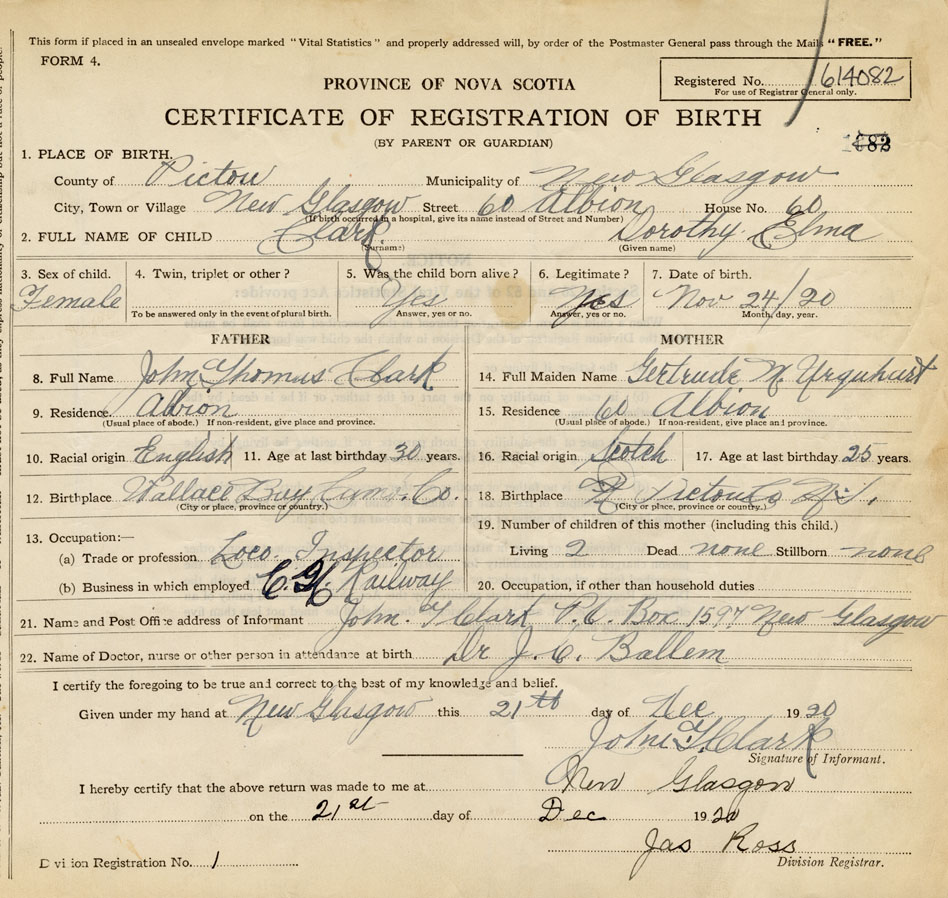 This form if placed in an unsealed envelope marked "Vital Statistics" and properly addressed will, by order of the Postmaster General pass through the Mails "FREE."
FORM 4.
Registered No. 614082
For use of Registrar General only.
PROVINCE OF NOVA SCOTIA
CERTIFICATE OF REGISTRATION OF BIRTH
(BY PARENT OR GUARDIAN)
1. PLACE OF BIRTH.
County of Pictou Municipality of New Glasgow
City, Town or Village New Glasgow Street 60 Albion House No. 60
(If birth occurred in a hospital, give its name instead of Street and Number)
2. FULL NAME OF CHILD Clark Dorothy Elma
(Surname) (Given name)
3. Sex of child. 4. Twin, triplet or other? 5. Was the child born alive? 6. Legitimate? 7. Date of birth.
Female Yes Yes Nov 24/20
To be answered only in the event of plural birth. Answer, yes or no. Answer, yes or no. Month, day, year.
FATHER MOTHER
8. Full Name John Thomas Clark 14. Full Maiden Name Gertrude M Urquhart
9. Residence. Albion 15. Residence 60 Albion
(Usual place of abode.) If non-resident, give place and province. (Usual place of abode.) If non-resident, give place and province.
10. Racial origin English 11. Age at last birthday 30 years. 16. Racial origin Scotch 17. Age at last birthday 25 years.
12. Birthplace Wallace Bay Cum. Co. 18. Birthplace Pictou Co N.S.
(City or place, province or country.) (City or place, province or country.)
19. Number of children of this mother (including this child.)
13. Occupation:—
(a) Trade or profession Loco. Inspector Living 2 Dead none Stillborn none
(b) Business in which employed Railway 20. Occupation, if other than household duties
21. Name and Post Office address of Informant John. T Clark P.O. Box 1597 New Glasgow
22. Name of Doctor, nurse or other person in attendance at birth Dr J. C. Ballem
I certify the foregoing to be true and correct to the best of my knowledge and belief.
Given under my hand at New Glasgow this 21st day of Dec 1920
John T. Clark
Signature of Informant.
I hereby certify that the above return was made to me at New Glasgow
on the 21st day of Dec 1920
Jas Ross
Division Registration No. 1 Division Registrar.